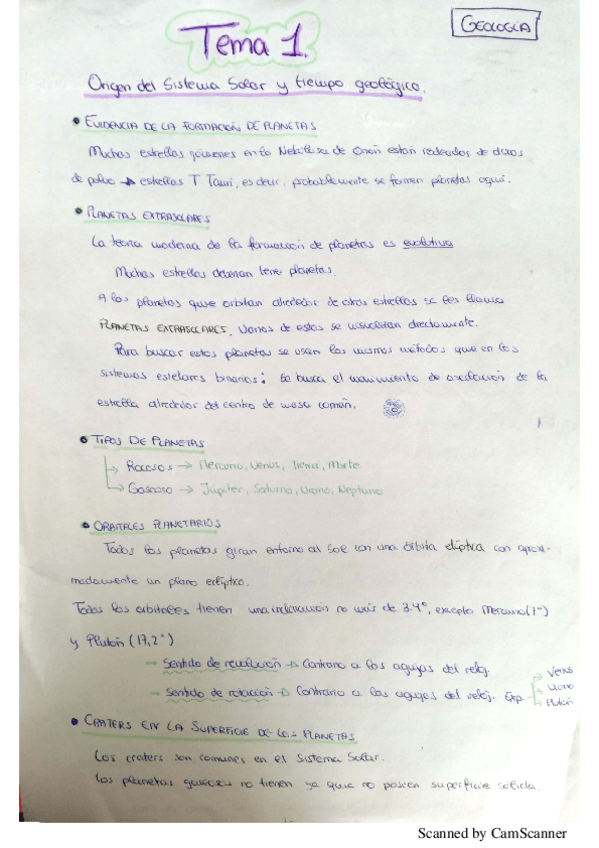 GEOLOGÍA
Tema 1.
Origen del Sistema Solar y tiempo geológico.
• EVIDENCIA DE LA FORMACIÓN DE PLANETAS
Muchas estrellas jóvenes en la Nebulosa de Orión están rodeadas de discos
de polvo → estrellas T Tauri, es decir, probablemente se formen planetas aquí.
• PLANETAS EXTRASOLARES
La teoría moderna de la formación de planetas es evolutiva
Muchas estrellas deberían tener planetas.
A los planetas que orbitan alrededor de otras estrellas se les llama
PLANETAS EXTRASOLARES. Varios de estos se visualizan directamente.
Para buscar estos planetas se usan los mismos métodos que en los
sistemas estelares binarios: Se busca el movimiento de oscilación de la
estrella alrededor del centro de masa común.
• TIPOS DE PLANETAS
→ Rocosos → Mercurio, Venus, Tierra, Marte
→ Gaseoso → Júpiter, Saturno, Urano, Neptuno
• ORBITALES PLANETARIOS
Todos los planetas giran entorno al Sol con una órbita elíptica con aprox-
imadamente un plano eclíptico.
Todos los orbitales tienen una inclinación no más de 3.4°, excepto Mercurio (7°)
y Plutón (17,2°)
→ Sentido de revolución → Contrario a las agujas del reloj.
→ Sentido de rotación → Contrario a las agujas del reloj. Exp. → Venus
→ Urano
→ Plutón
• CRATERS EN LA SUPERFICIE DE LOS PLANETAS
Los craters son comunes en el Sistema Solar.
Los planetas gaseosos no tienen ya que no poseen superficie sólida.
Scanned by CamScanner